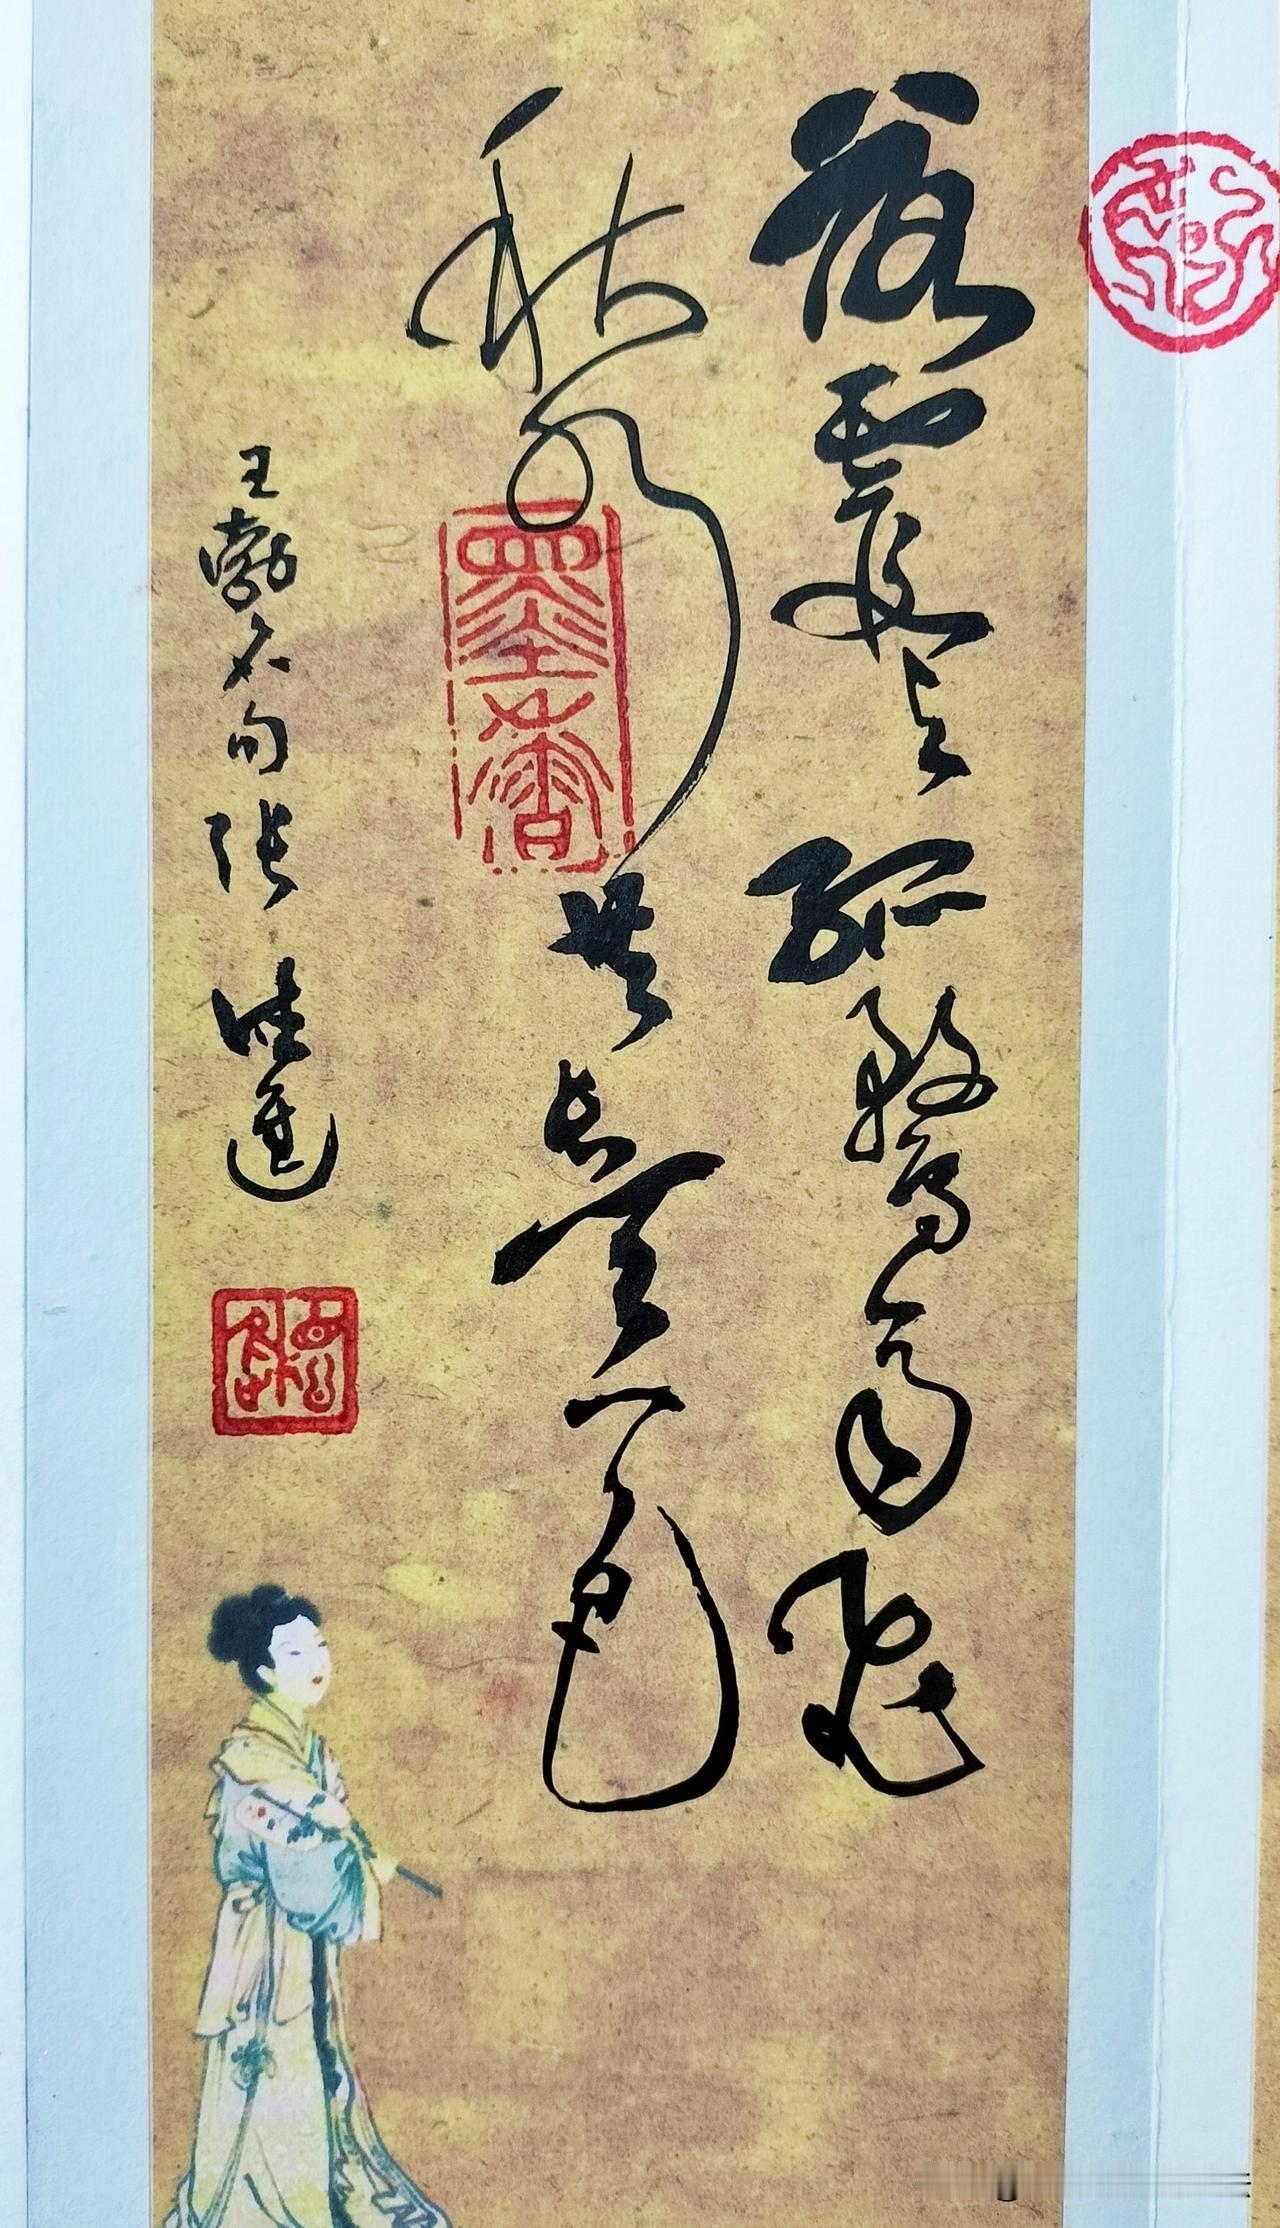 落霞与孤鹜齐飞
秋水共长天一色
王勃名句张
墨香